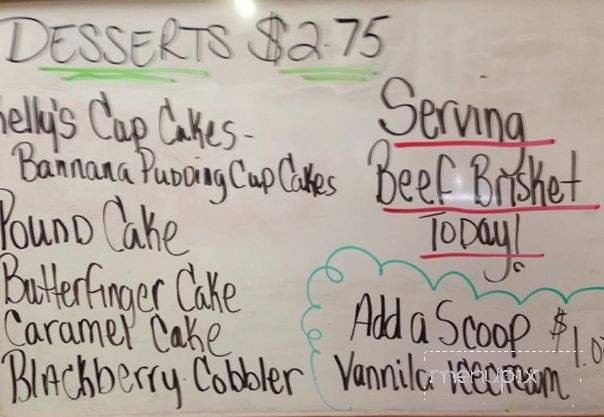 DESSERTS $2.75
Kelly's Cup Cakes-
Bannana Pudding Cup Cakes
Pound Cake
Butterfinger Cake
Caramel Cake
Blackberry Cobbler
Serving
Beef Brisket
Today!
Add a Scoop $1.0
Vannila Icecream
menupix